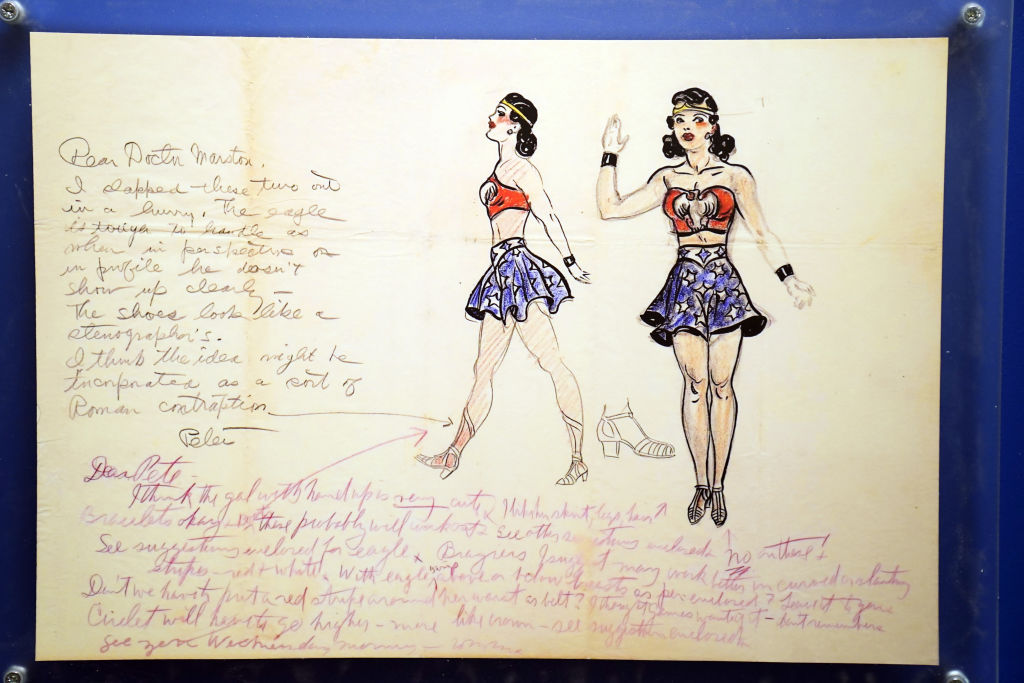 Dear Doctor Marston.
I slapped these two out
in a hurry. The eagle
is tough to handle as
when in perspective or
in profile he doesn't
show up clearly —
The shoes look like a
stenographer's.
I think the idea might be
incorporated as a sort of
Roman contraption
Peter
Dear Pete
I think the gal with hand up is very cute. I like her skirt, legs, hair.
Bracelets okay + boots these probably will work out. See other suggestions enclosed. No on these!
See suggestions enclosed for eagle + stripes - red + white. With eagle's wings above or below breasts as per enclosed? Leave it to you.
Don't we have to put a red stripe around her waist as belt? I thought Gaines wanted it - don't remember.
Circlet will have to go higher - more like crown - see suggestions enclosed.
See you Wednesday morning -